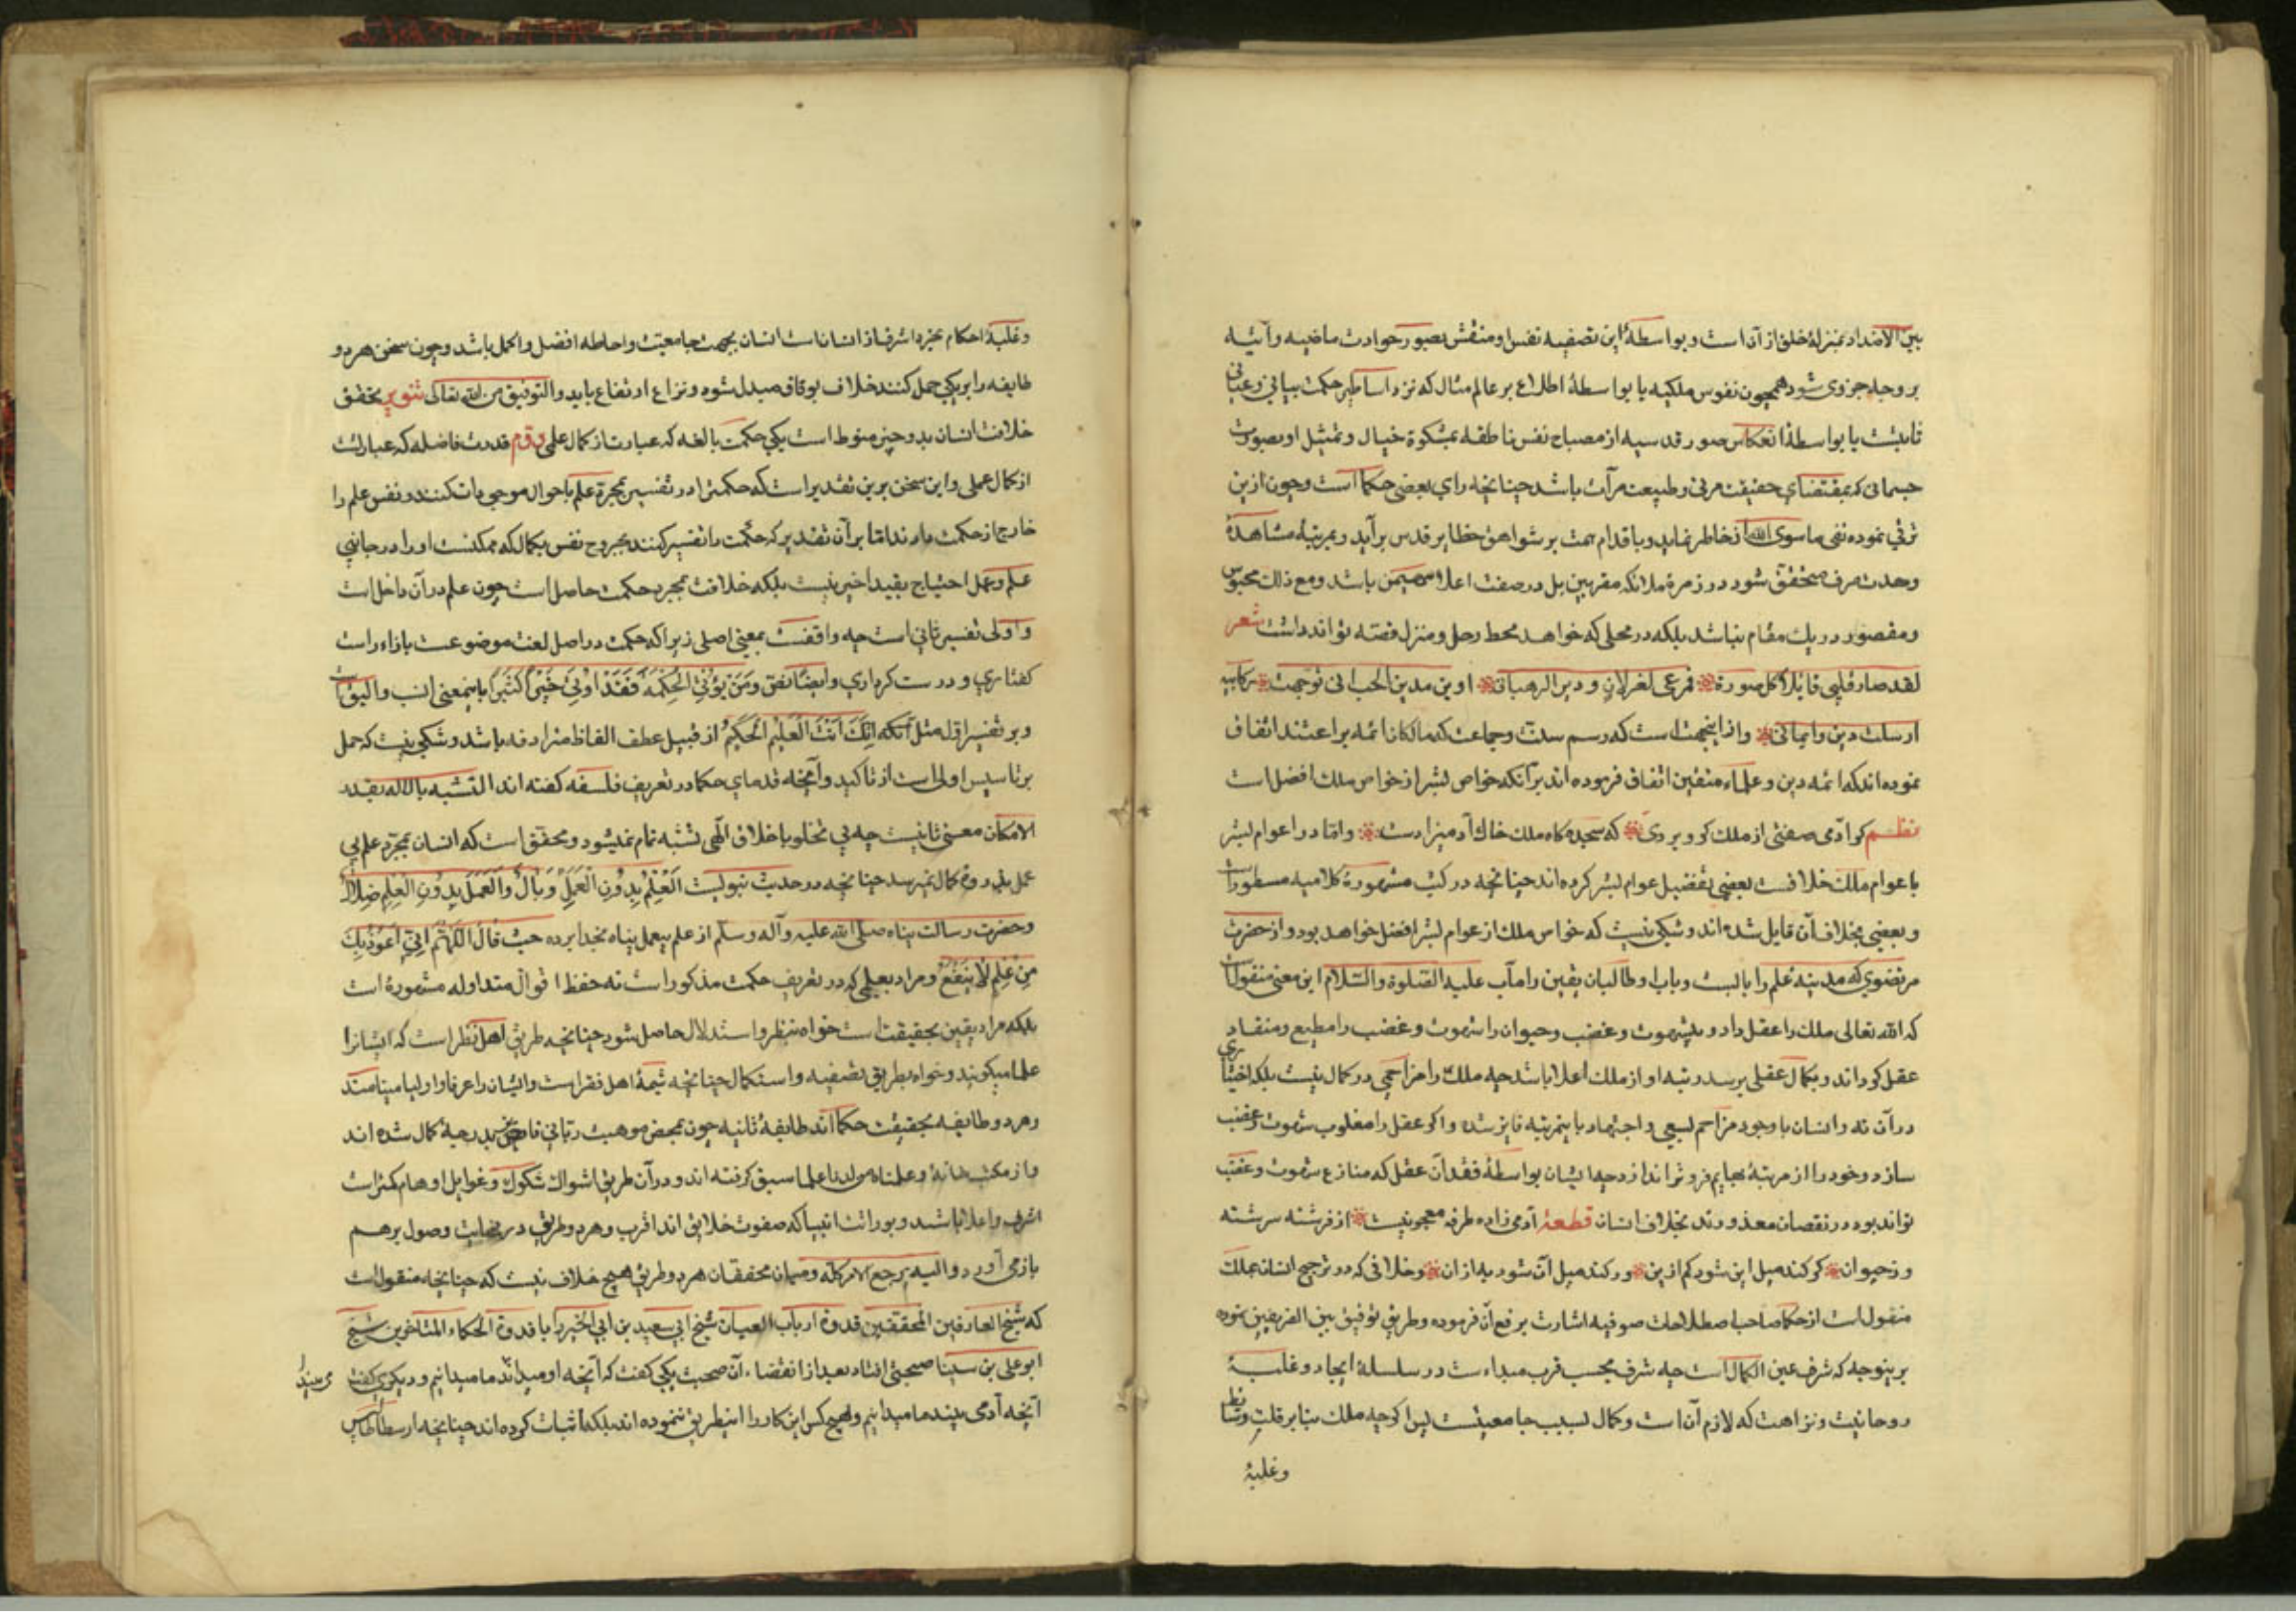 بین الاضداد بمنزلهٔ خلق از آن است و بواسطهٔ این تصفیه نفس او منقش بصور حوادث ماضیه و آتیه
بر وجه جزوی شود همچون نفوس ملکیه یا بواسطهٔ اطلاع بر عالم مثال که نزد اساطین حکمت بیانی و عیانی
ثابتست یا بواسطهٔ انعکاس صور قدسیه از مصباح نفس ناطقه بمشکوة خیال و تمثیل او بصورت
جسمانی که بمقتضای حقیقت مرئی و طبیعت مرآت باشد چنانچه رای بعضی حکما است و چون ازین
ترقی نموده نفی ما سوی الله از خاطر نماید و باقدام همت بر شواهق حظایر قدس برآید و بمرتبهٔ مشاهدهٔ
وحدت صرف متحقق شود در زمرهٔ ملائکه مقربین بل در صفت اعلا مهیمن باشد و مع ذلک محبوس
و مقصور در یک مقام نباشد بلکه در محلی که خواهد محط رحل و منزل قصد تواند داشت شعر
لقد صار قلبی قابلا کل صورة فمرعی لغزلان و دیر الرهبان ادین بدین الحب انی توجهت رکائبه
ارسلت دینی و ایمانی و ازاینجهت است که رسم سنت و جماعت که سالکان ائمه براعتند اتفاق
نموده اند که ائمه دین و علماء متقین اتفاق فرموده اند برآنکه خواص بشر از خواص ملک افضل است
نظم کو آدمی صفتی از ملک گرو بردی که سجده گاه ملک خاک آدمیزادست و اما در اعوام بشر
با عوام ملک خلافست بعضی تفضیل عوام بشر کرده اند چنانچه در کتب مشهورهٔ کلامیه مسطورست
و بعضی بخلاف آن قایل شده اند و شکی نیست که خواص ملک از عوام بشر افضل خواهد بود و از حضرت
مرتضوی که مدینهٔ علم را بابست و باب او طالبان یقین را مآب علیه الصلوة والسلام این معنی منقولست
که الله تعالی ملک را عقل داد و بیشهوت و غضب و حیوان را شهوت و غضب را مطیع و منقاد
عقل گرداند و بکمال عقلی برسد رتبه او از ملک اعلا باشد چه ملک را مزاحمی در کمال نیست بلکه اختیاری
در آن نه و انسان با وجود مزاحم بسعی و اجتهاد باینمرتبه فایز شده و اگر عقل را مغلوب شهوت و غضب
سازد و خود را از مرتبهٔ بهایم فروتر اندازد چه ایشان بواسطهٔ فقدان عقل که منازع شهوت و غضب
تواند بود در نقصان معذورند بخلاف انسان قطعهٔ آدمی زاده طرفه معجونیست از فرشته سرشته
وز حیوان گر کند میل این شود کم ازین ور کند میل آن شود به ازان و خلافی که در ترجیح انسان بملک
منقول است از حکما صاحب اصطلاحات صوفیه اشارت برفع آن فرموده و طریق توفیق بین الفریقین نموده
برینوجه که شرف عین الکمال است چه شرف بحسب قرب مبداءست در سلسلهٔ ایجاد و غلبهٔ
روحانیت و نزاهت که لازم آن است و کمال بسبب جامعیتست پس اگرچه ملک بنابر قلت وسایط
و غلبهٔ
و غلبهٔ احکام تجرد اشرف از انسانست انسان بجهت جامعیت و احاطه افضل و اکمل باشد و چون سخن هر دو
طایفه را بر یکی حمل کنند خلاف بوفاق مبدل شود و نزاع ارتفاع یابد والتوفیق من الله تعالی تنویر تحقق
خلافت انسان بدو چیز منوط است یکی حکمت بالغه که عبارت از کمال علمی دوم قدرت فاضله که عبارتست
از کمال عملی و این سخن برین تقدیر است که حکمت را در تفسیر بمجرد علم باحوال موجودات کنند و نفس علم را
خارج از حکمت دارند اما بر آن تقدیر که حکمت را تفسیر کنند بخروج نفس بکمال که ممکنست او را در جانبی
علم و عمل احتیاج بقید اخیر نیست بلکه خلافت بمجرد حکمت حاصل است چون علم در آن داخل است
و اولی تفسیر ثانی است چه واقفست بمعنی اصلی زیرا که حکمت در اصل لغت موضوعست بازاء راست
گفتاری و درست کرداری و ایضا نص وَمَن یُؤْتَ الْحِکْمَةَ فَقَدْ اُوتِیَ خَیْرًا کَثِیرًا باینمعنی انسب و الیق است
و بر تفسیر اول مثل آنکه اِنَّکَ اَنْتَ الْعَلِیمُ الْحَکِیمُ از قبیل عطف الفاظ مترادفه باشد و شکی نیست که حمل
بر تاسیس اولی است از تاکید و آنچه قدمای حکما در تعریف فلسفه گفته اند التشبه بالاله بقدر
الامکان معنی ثانیست چه بی تخلق باخلاق الهی تشبه تمام نمیشود و محقق است که انسان بمجرد علم بی
عمل بذروهٔ کمال نمیرسد چنانچه در حدیث نبویست اَلْعِلْمُ بِدُونِ الْعَمَلِ وَبَالٌ وَالْعَمَلُ بِدُونِ الْعِلْمِ ضَلَالٌ
و حضرت رسالت پناه صلی الله علیه وآله وسلم از علم بیعمل پناه بخدا برده حیث قال اَللّٰهُمَّ اِنِّی اَعُوذُ بِکَ
مِنْ عِلْمٍ لَا یَنْفَعُ و مراد بعلمی که در تعریف حکمت مذکور است نه حفظ اقوال متداوله مشهوره است
بلکه مراد یقین بحقیقت است خواه بنظر و استدلال حاصل شود چنانچه طریق اهل نظر است که ایشانرا
علما میگویند و خواه بطریق تصفیه و استکمال چنانچه شیمهٔ اهل فقر است و ایشان را عرفا و اولیا مینامند
و هر دو طایفه بحقیقت حکمااند طایفهٔ ثانیه چون بمحض موهبت ربانی فایض بدرجهٔ کمال شده اند
و از مکتب خانهٔ و علمناه من لدنا علما سبق گرفته اند و در آن طریق اشواک شکوک و غوایل اوهام کمتر است
اشرف و اعلا باشند و بوراثت انبیا که صفوت خلایق اند اقرب و هر دو طریق در نهایت وصول برهم
بازمی آورد و الیه یرجع الامر کله و میان محققان هر دو طریق هیچ خلاف نیست که چنانچه منقولست
که شیخ العارفین المحققین قدوة ارباب العیان شیخ ابی سعید بن ابی الخیر را با قدوة الحکماء المتاخرین شیخ
ابو علی بن سینا صحبتی افتاد بعد از انقضاء آن صحبت یکی گفت که آنچه او میداند ما میدانیم و دیگری گفت
آنچه آدمی بیند ما میدانیم و هیچکس این کار را اینطریق ننموده اند بلکه اثبات کرده اند چنانچه ارسطاطالیس